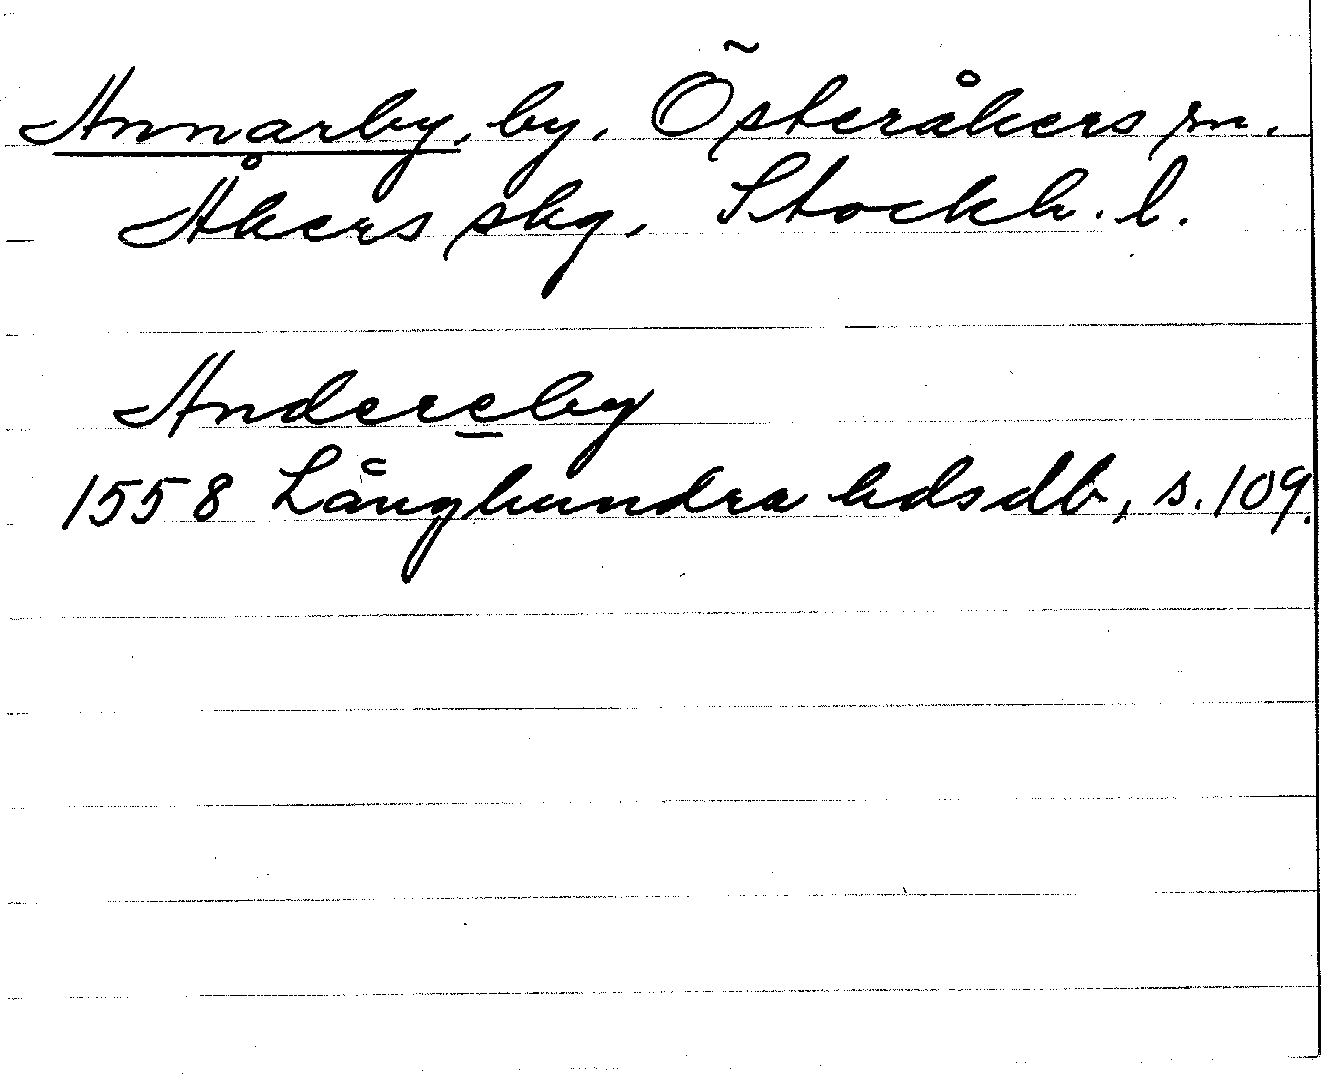 Annarby, by, Österåkers sn.
Åkers skg, Stockh. l.
Andereby
1558 Långhundra hdsdb, s. 109.